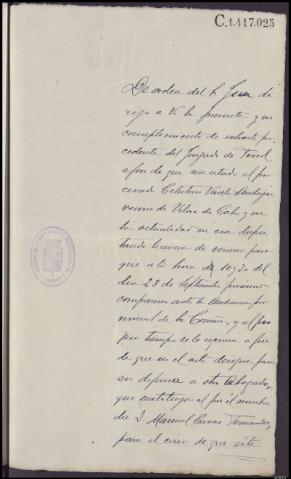 C.1.417.025
De orden del Sr Juez di
rijo a V. la presente, y en
cumplimiento de exhorto pro
cedente del Juzgado de
a fin de que sea citado el pro
cesado Celestino Varela
vecino de Vilar de y en
la actualidad en esa
tando licencia de verano para
que a la hora de 10 y 30 del
dia 23 de Septiembre proximo
comparezca ante la Audiencia pro
vincial de la Coruña, y al pro
pio tiempo se le requiera a fin
de que en el acto designe para
su defensa a otro Abogado,
que sustituya al por el nombra
do D. Manuel Casas Fernandez,
para el caso de que este